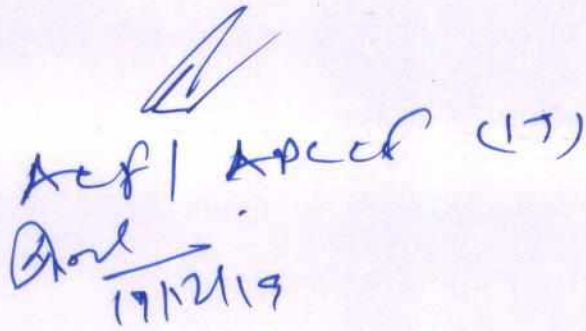 ACF / APCCF (IT)
19/12/19